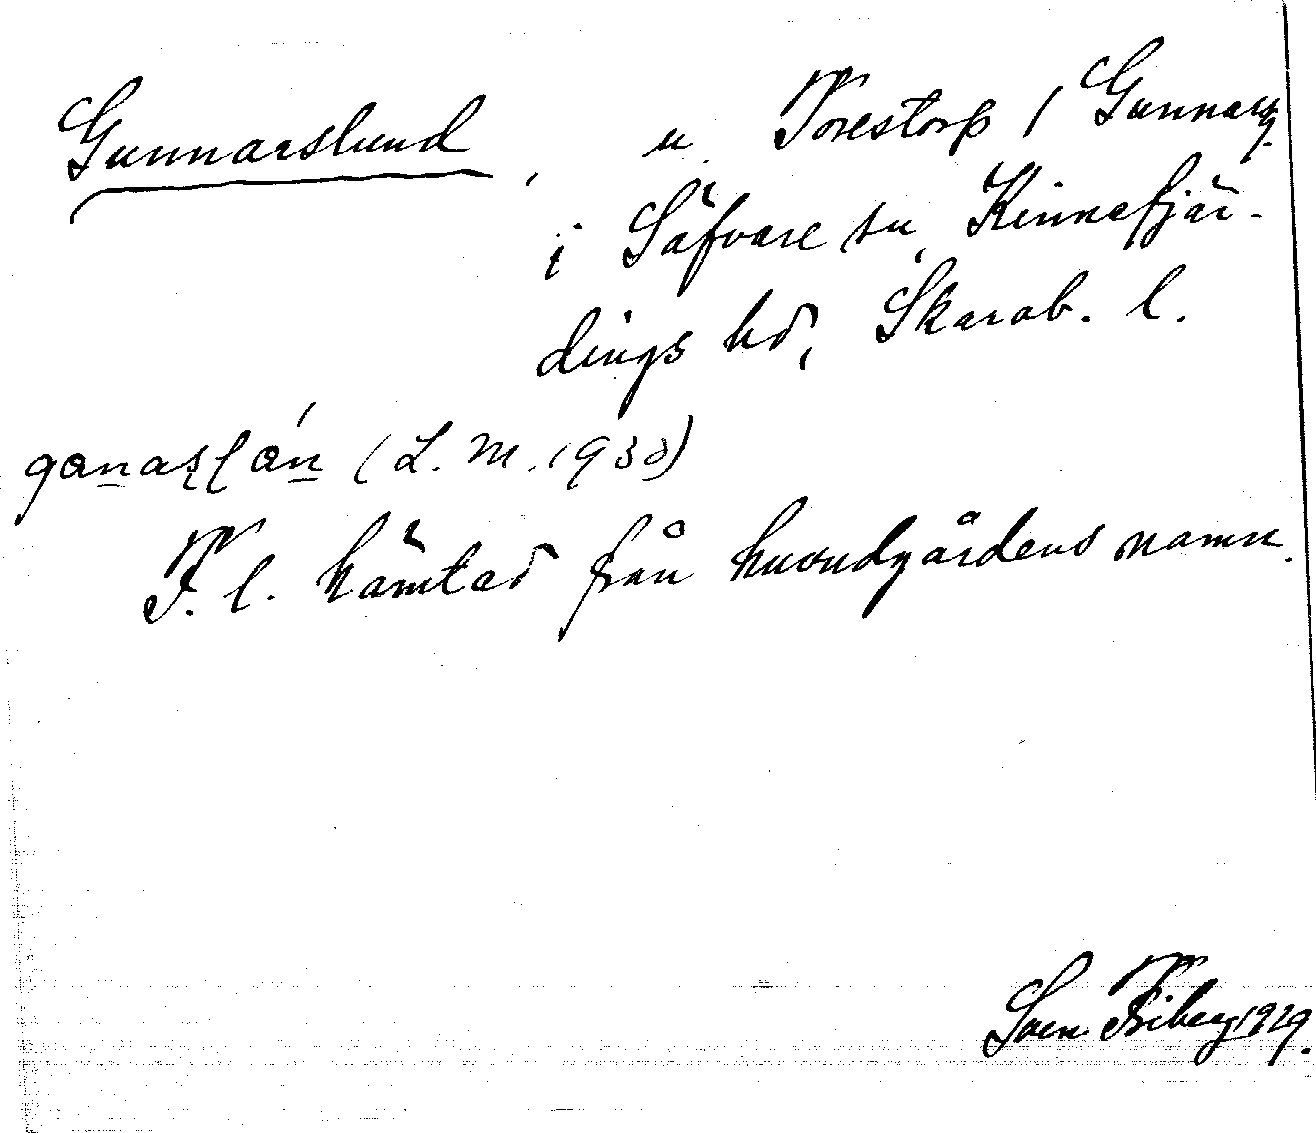 Gunnarslund, u. Torestorp / Gunnarsg.
i Säfvare sn, Kinnefjär-
dings hd, Skarab. l.
(L. M. 1930)
F. l. hämtad från huvudgårdens namn.
Sven Friberg 1929.